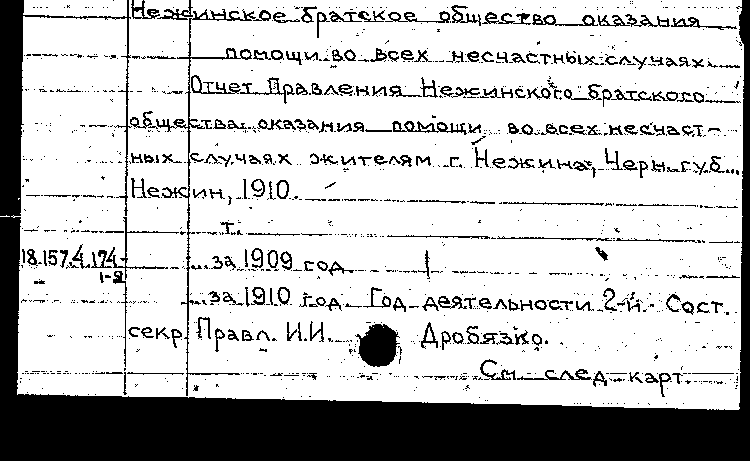 Нежинское братское общество оказания
помощи во всех несчастных случаях.
Отчет Правления Нежинского братского
общества оказания помощи во всех несчаст-
ных случаях жителям г. Нежина, Черн. губ...
Нежин, 1910.
т.
18.157.4.174-
1-2
...за 1909 год.
...за 1910 год. Год деятельности 2-й. Сост.
секр. Правл. И.И. Дробязко.
См. след. карт.